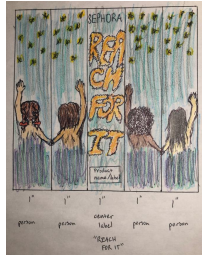 SEPHORA
REA
CH
FOR
IT
Product
name/label
1" 1" 1" 1" 1"
person person center person person
label
"REACH
FOR IT"